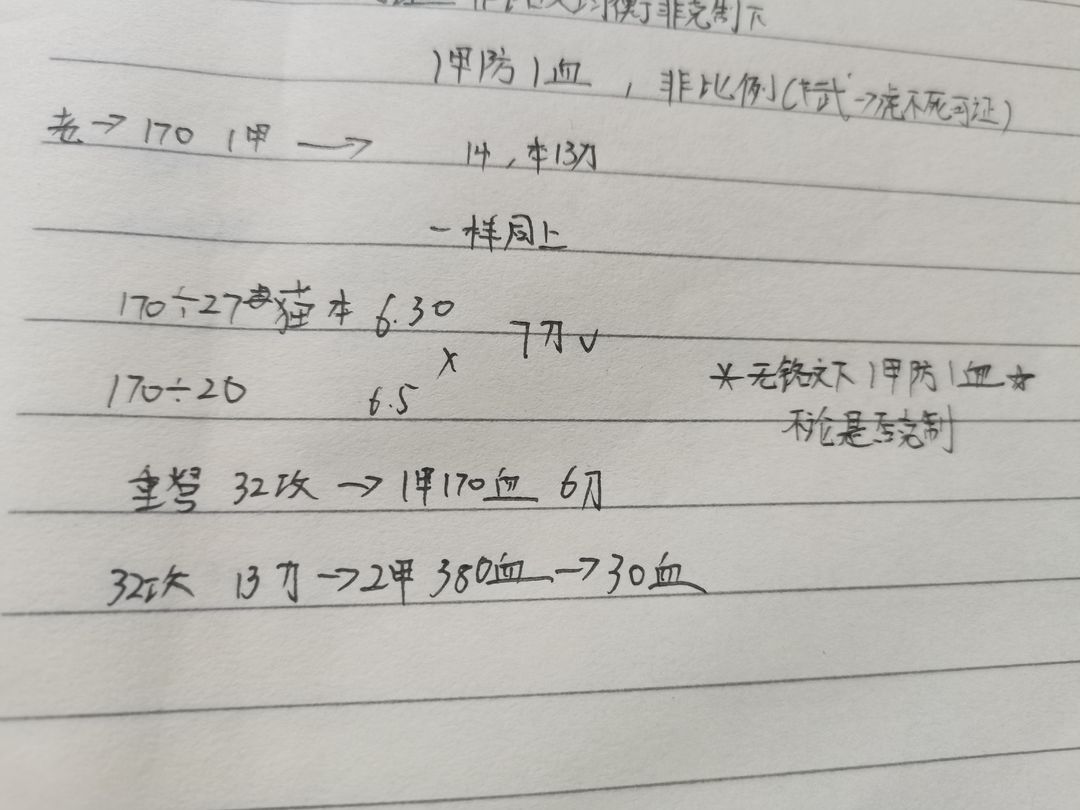 非克制下
1甲防1血，非比例(卡武→虎不死可证)
老→170 1甲 → 14，本13刀
一样同上
170÷27 猫本 6.30 7刀✓
x
170÷20 6.5
*无铭文下1甲防1血☆
不论是否克制
重弩 32攻→1甲170血 6刀
32攻 13刀→2甲380血→30血